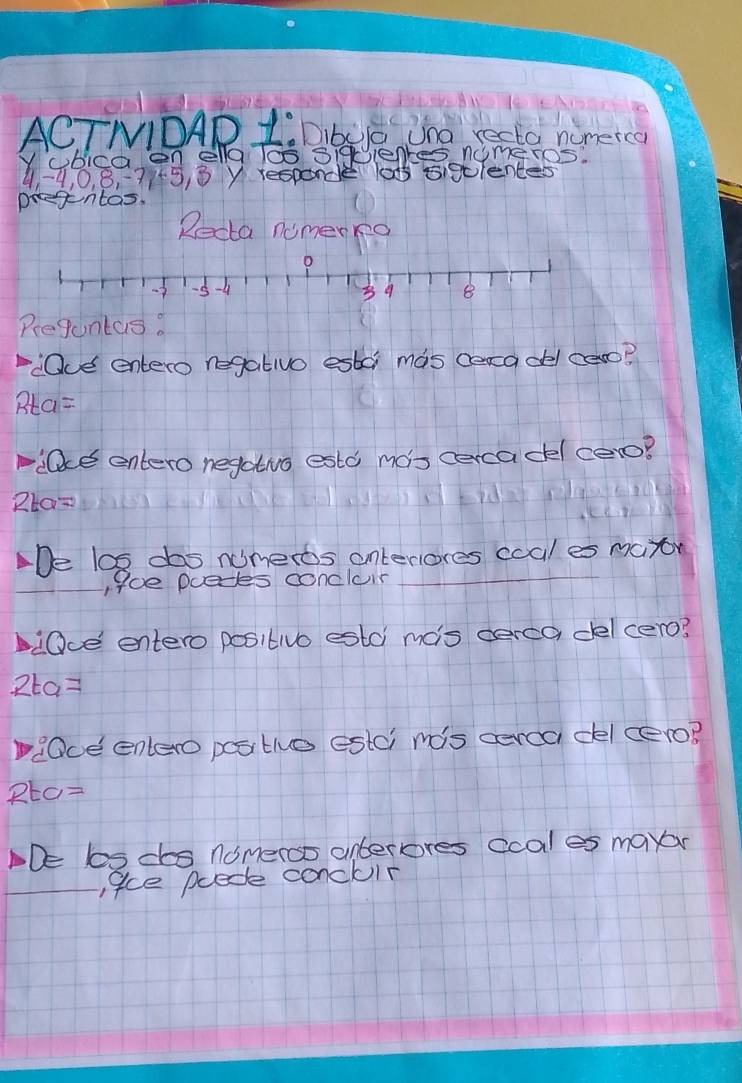 ACTIVIDAD 1: Dibuja una recta numerica
y ubica en ella los siguientes números:
4,-4,0,8,-7,-5,3 y responde las siguientes
preguntas.
Recta númerica
0
-7 -5 -4 3 4 8
Preguntas:
¿Qué entero negativo está más cerca del cero?
Rta=
¿Qué entero negativo está más cerca del cero?
Rta=
De los dos números anteriores cual es mayor
______, que puedes concluir ______________
¿Qué entero positivo está más cerca del cero?
Rta=
¿Qué entero positivo está más cerca del cero?
Rta=
De los dos números anteriores cual es mayor
______, que puede concluir